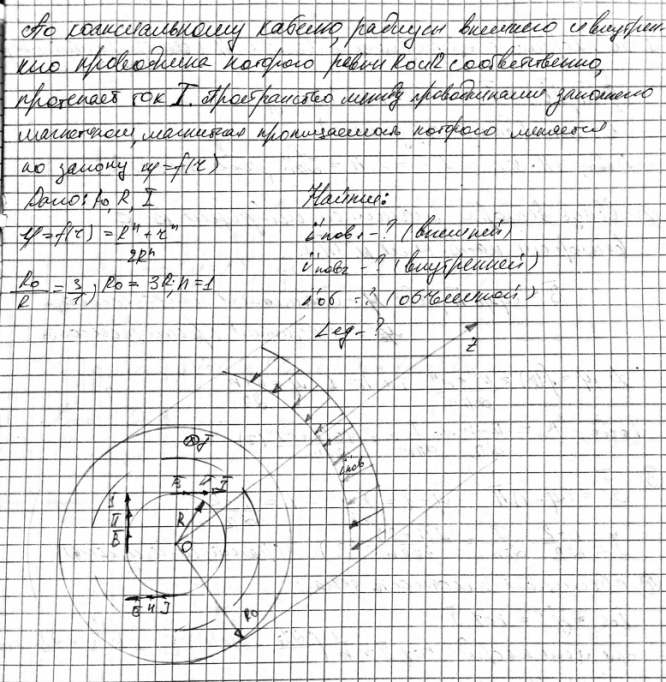 По коаксиальному кабелю, радиусы внешнего и внутрен-
него проводника которого равны R0 и R соответственно,
протекает ток I. Пространство между проводниками заполнено
магнетиком, магнитная проницаемость которого меняется
по закону μ=f(r)
Дано: R, I
Найти:
μ=f(r)=Rⁿ+rⁿ
2Rⁿ
R0/R = 3/1; R0=3R; n=1
i'пов1-? (внешней)
i'пов2-? (внутренней)
i'об-? (объемной)
Lед-?
Z
i'пов
B H J
R
O
J
H
B
B H J
R0